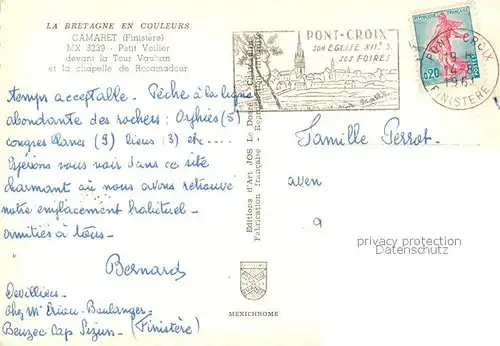 LA BRETAGNE EN COULEURS
CAMARET (Finistère)
MX 3239 - Petit Voilier
devant la Tour Vauban
et la chapelle de Rocamadour
temps acceptable. Pêche à la ligne
abondante des rochers : Orphies (5)
congres blancs (9) lieus (3) etc....
Espérons vous voir dans ce site
charmant où nous avons retrouvé
notre emplacement habituel -
amitiés à tous -
Bernard
Devilliers
Chez Mr Boulanger -
Beuzec Cap Sizun - (Finistère)
Editions d'Art JOS Le Doaré
Fabrication française - Reproduction
MEXICHROME
PONT-CROIX
SON EGLISE XIIe S.
SES FOIRES
REPUBLIQUE FRANÇAISE
0,20
PONT-CROIX
FINISTERE
Famille Perrot
aven
a
privacy protection
Datenschutz